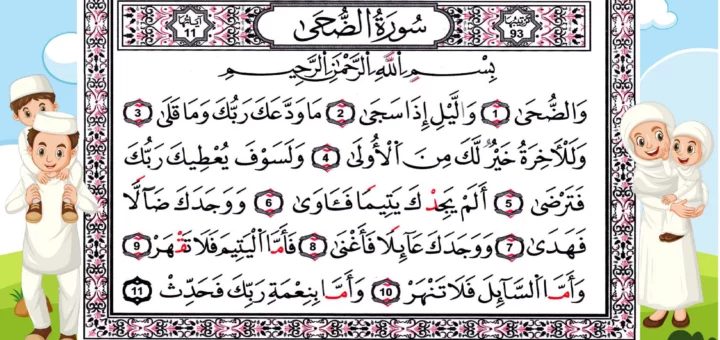 ترتيبها 93 سُورَةُ الضُّحَىٰ آياتها 11
بِسْمِ اللَّهِ الرَّحْمَٰنِ الرَّحِيمِ
وَالضُّحَىٰ 1 وَالَّيْلِ إِذَا سَجَىٰ 2 مَا وَدَّعَكَ رَبُّكَ وَمَا قَلَىٰ 3
وَلَلْآخِرَةُ خَيْرٌ لَّكَ مِنَ الْأُولَىٰ 4 وَلَسَوْفَ يُعْطِيكَ رَبُّكَ
فَتَرْضَىٰ 5 أَلَمْ يَجِدْكَ يَتِيمًا فَـَٔاوَىٰ 6 وَوَجَدَكَ ضَآلًّا
فَهَدَىٰ 7 وَوَجَدَكَ عَآئِلًا فَأَغْنَىٰ 8 فَأَمَّا الْيَتِيمَ فَلَا تَقْهَرْ 9
وَأَمَّا السَّآئِلَ فَلَا تَنْهَرْ 10 وَأَمَّا بِنِعْمَةِ رَبِّكَ فَحَدِّثْ 11